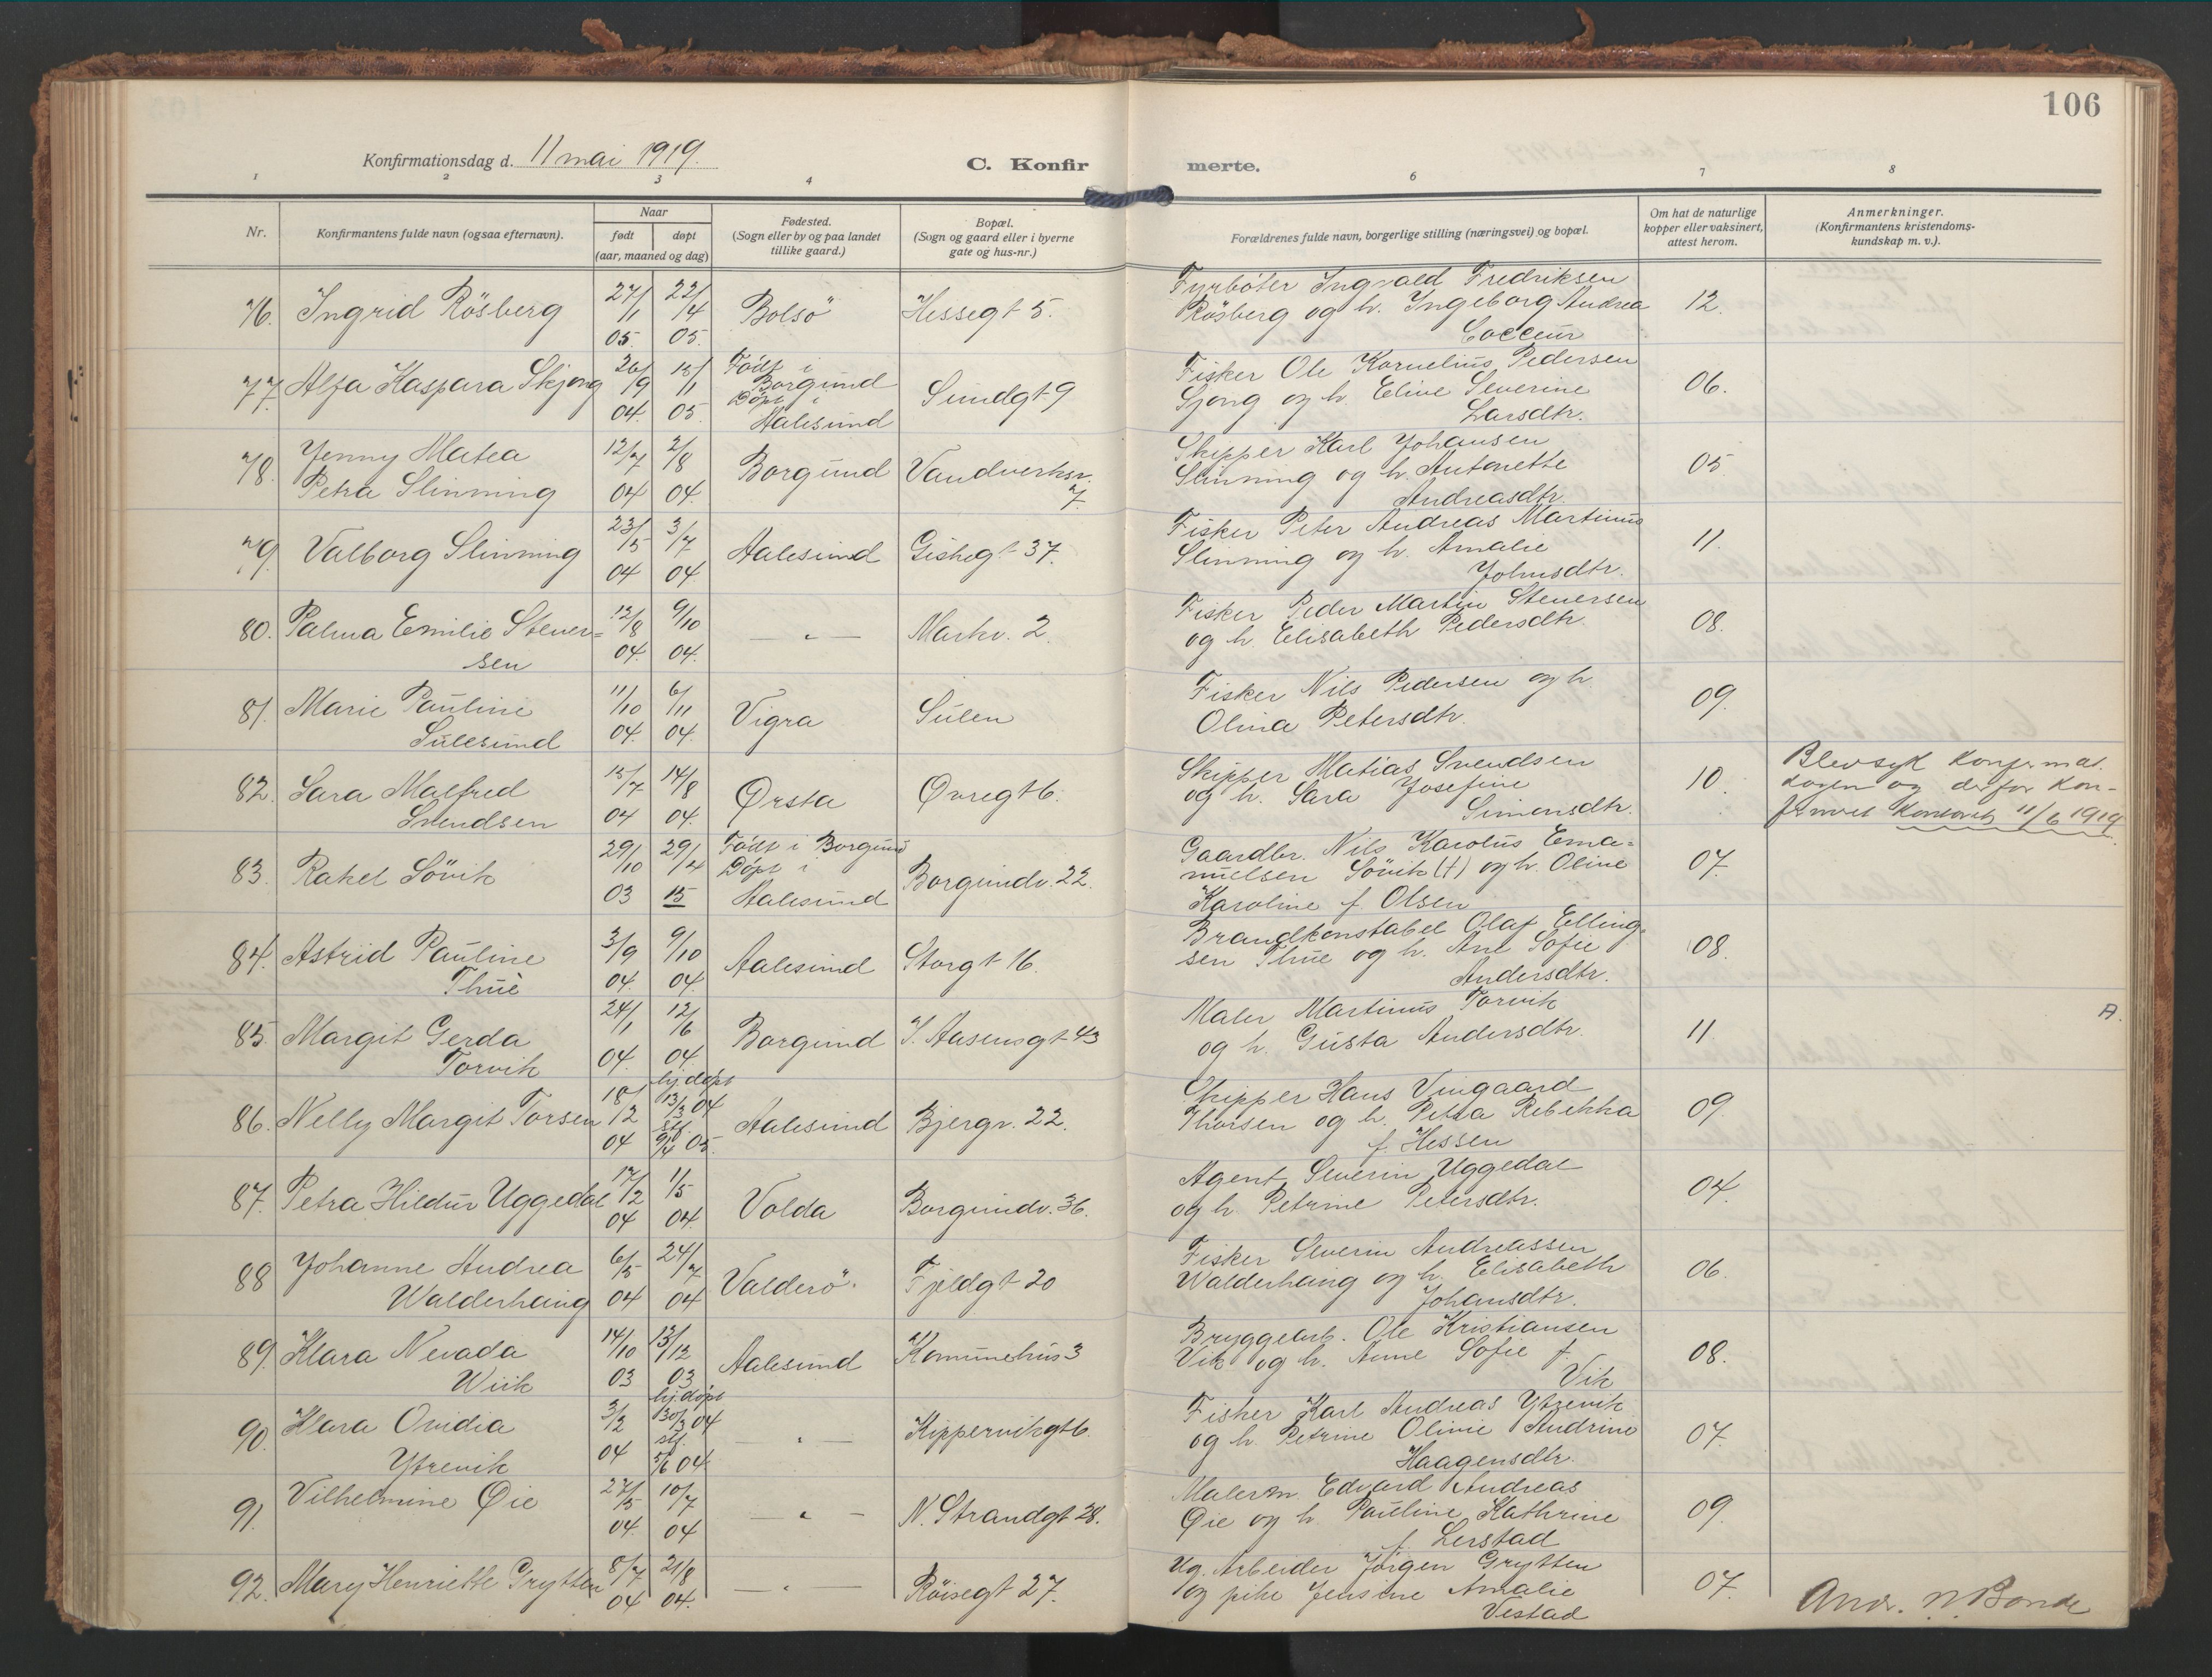 106
Konfirmationsdag d. 11 mai 1919.
C. Konfirmerte.
1 2 3 4 6 7 8
Nr. | Konfirmantens fulde navn (ogsaa efternavn). | Naar født døpt (aar, maaned og dag) | Fødested. (Sogn eller by og paa landet tillike gaard.) | Bopæl. (Sogn og gaard eller i byerne gate og hus-nr.) | Forældrenes fulde navn, borgerlige stilling (næringsvei) og bopæl. | Om hat de naturlige kopper eller vaksinert, attest herom. | Anmerkninger. (Konfirmantens kristendomskundskap m. v.).
76. Ingrid Rösberg 27/1 05. 22/4 05. Bolsö Hessegt 5. Fyrbøter Ingvald Fredriksen
Rösberg og h. Ingeborg Andrea 12.
77. Alfa Kaspara Skjong 26/9 04 15/1 05 Födt i Borgund Döpt i Aalesund Sundgt 9 Fisker Ole Kornelius Pedersen
Sjong og h. Eline Severine
Larsdtr. 06.
78. Jenny Matea
Petra Slinning 12/7 04 2/8 04. Borgund Vandverksv. 7. Skipper Karl Johansen
Slinning og h. Antonette
Andreasdtr. 05
79. Valborg Slinning 23/5 04 3/7 04. Aalesund Giskegt 37. Fisker Peter Andreas Martinus
Slinning og h. Amalie
Johnsdtr. 11.
80. Palma Emilie Stener=
sen 12/8 04. 9/10 04. — " — Markv. 2. Fisker Peder Martin Stenersen
og h. Elisabeth Pedersdtr. 08.
81. Marie Pauline
Sulesund 11/10 04. 6/11 04. Vigra Sulen Fisker Nils Pedersen og h.
Olina Petersdtr. 09.
82. Sara Malfred
Svendsen 15/7 04 14/8 04. Ørsta Øvregt 6. Skipper Matias Svendsen
og h. Sara Josefine
Simensdtr. 10. Blev syk konfirmat.
dagen og derfor kon-
11/6 1919.
83. Rakel Sövik 29/10 03 29/4 15 Födt i Borgund Döpt i Aalesund Borgundv. 22. Gaardbr. Nils Karolus Ema=
nuelsen Sövik (†) og h. Oline
Karoline f. Olsen 07.
84. Astrid Pauline
Thue 3/9 04. 9/10 04. Aalesund Storgt 16. Brandkonstabel Olaf Elling-
sen Thue og h. Ane Sofie
Andersdtr. 08.
85. Margit Gerda
Torvik 24/1 04. 12/6 04. Borgund I. Aasensgt 43 Maler Martinus Torvik
og h. Gusta Andersdtr. 11. A.
86. Nelly Margit Torsen 18/2 04 hj. döpt 13/3 04 stf. 9/4 05. Aalesund Bjergv. 22. Skipper Hans Vingaard
Thorsen og h. Petra Rebekka
f. Hessen 09.
87. Petra Hildur Uggedal 17/2 04 1/5 04. Volda Borgundv. 36. Agent Severin Uggedal
og h. Petrine Petersdtr. 04.
88 Johanne Andrea
Walderhaug 6/5 04 24/7 04 Valderö. Fjeldgt 20 Fisker Severin Andreassen
Walderhaug og h. Elisabeth
Johansdtr. 06.
89. Klara Nevada
Wiik 14/10 03 13/12 03 Aalesund Komunehus 3 Bryggearb. Ole Kristiansen
Vik og h. Anne Sofie f.
Vik 08.
90. Klara Ovidia
Ytrevik 3/2 04 hj. döpt 30/3 04 stf. 5/6 04 — " — Kippervikgt 6. Fisker Karl Andreas Ytrevik
og h. Petrine Olivie Andrine
Haagensdtr. 07.
91. Vilhelmine Øie 27/5 04. 10/7 04 — " — N. Strandgt 28. Malerm. Edvard Andreas
Øie og h. Pauline Kathrine
f. Lerstad 09.
92. Mary Henriette Grytten 8/7 04 21/8 04. — " — Röisegt 27. Ug. Arbeider Jørgen Grytten
og pike Jensine Amalie
Vestad 07.
Andr. N. Bonde